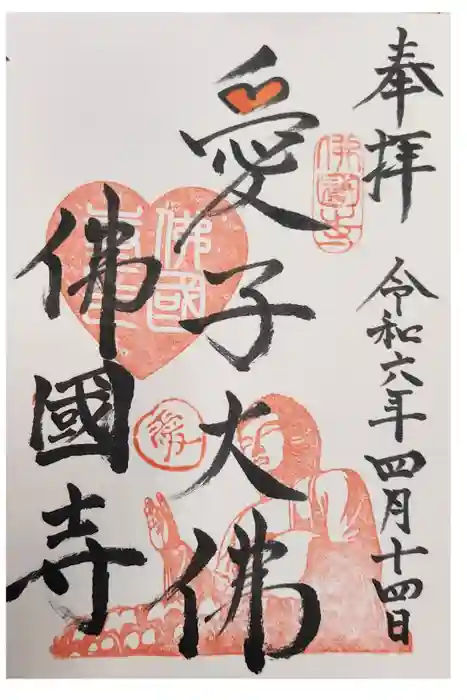 奉拝 令和六年四月十四日
愛子大佛
佛國寺
佛國寺
佛國